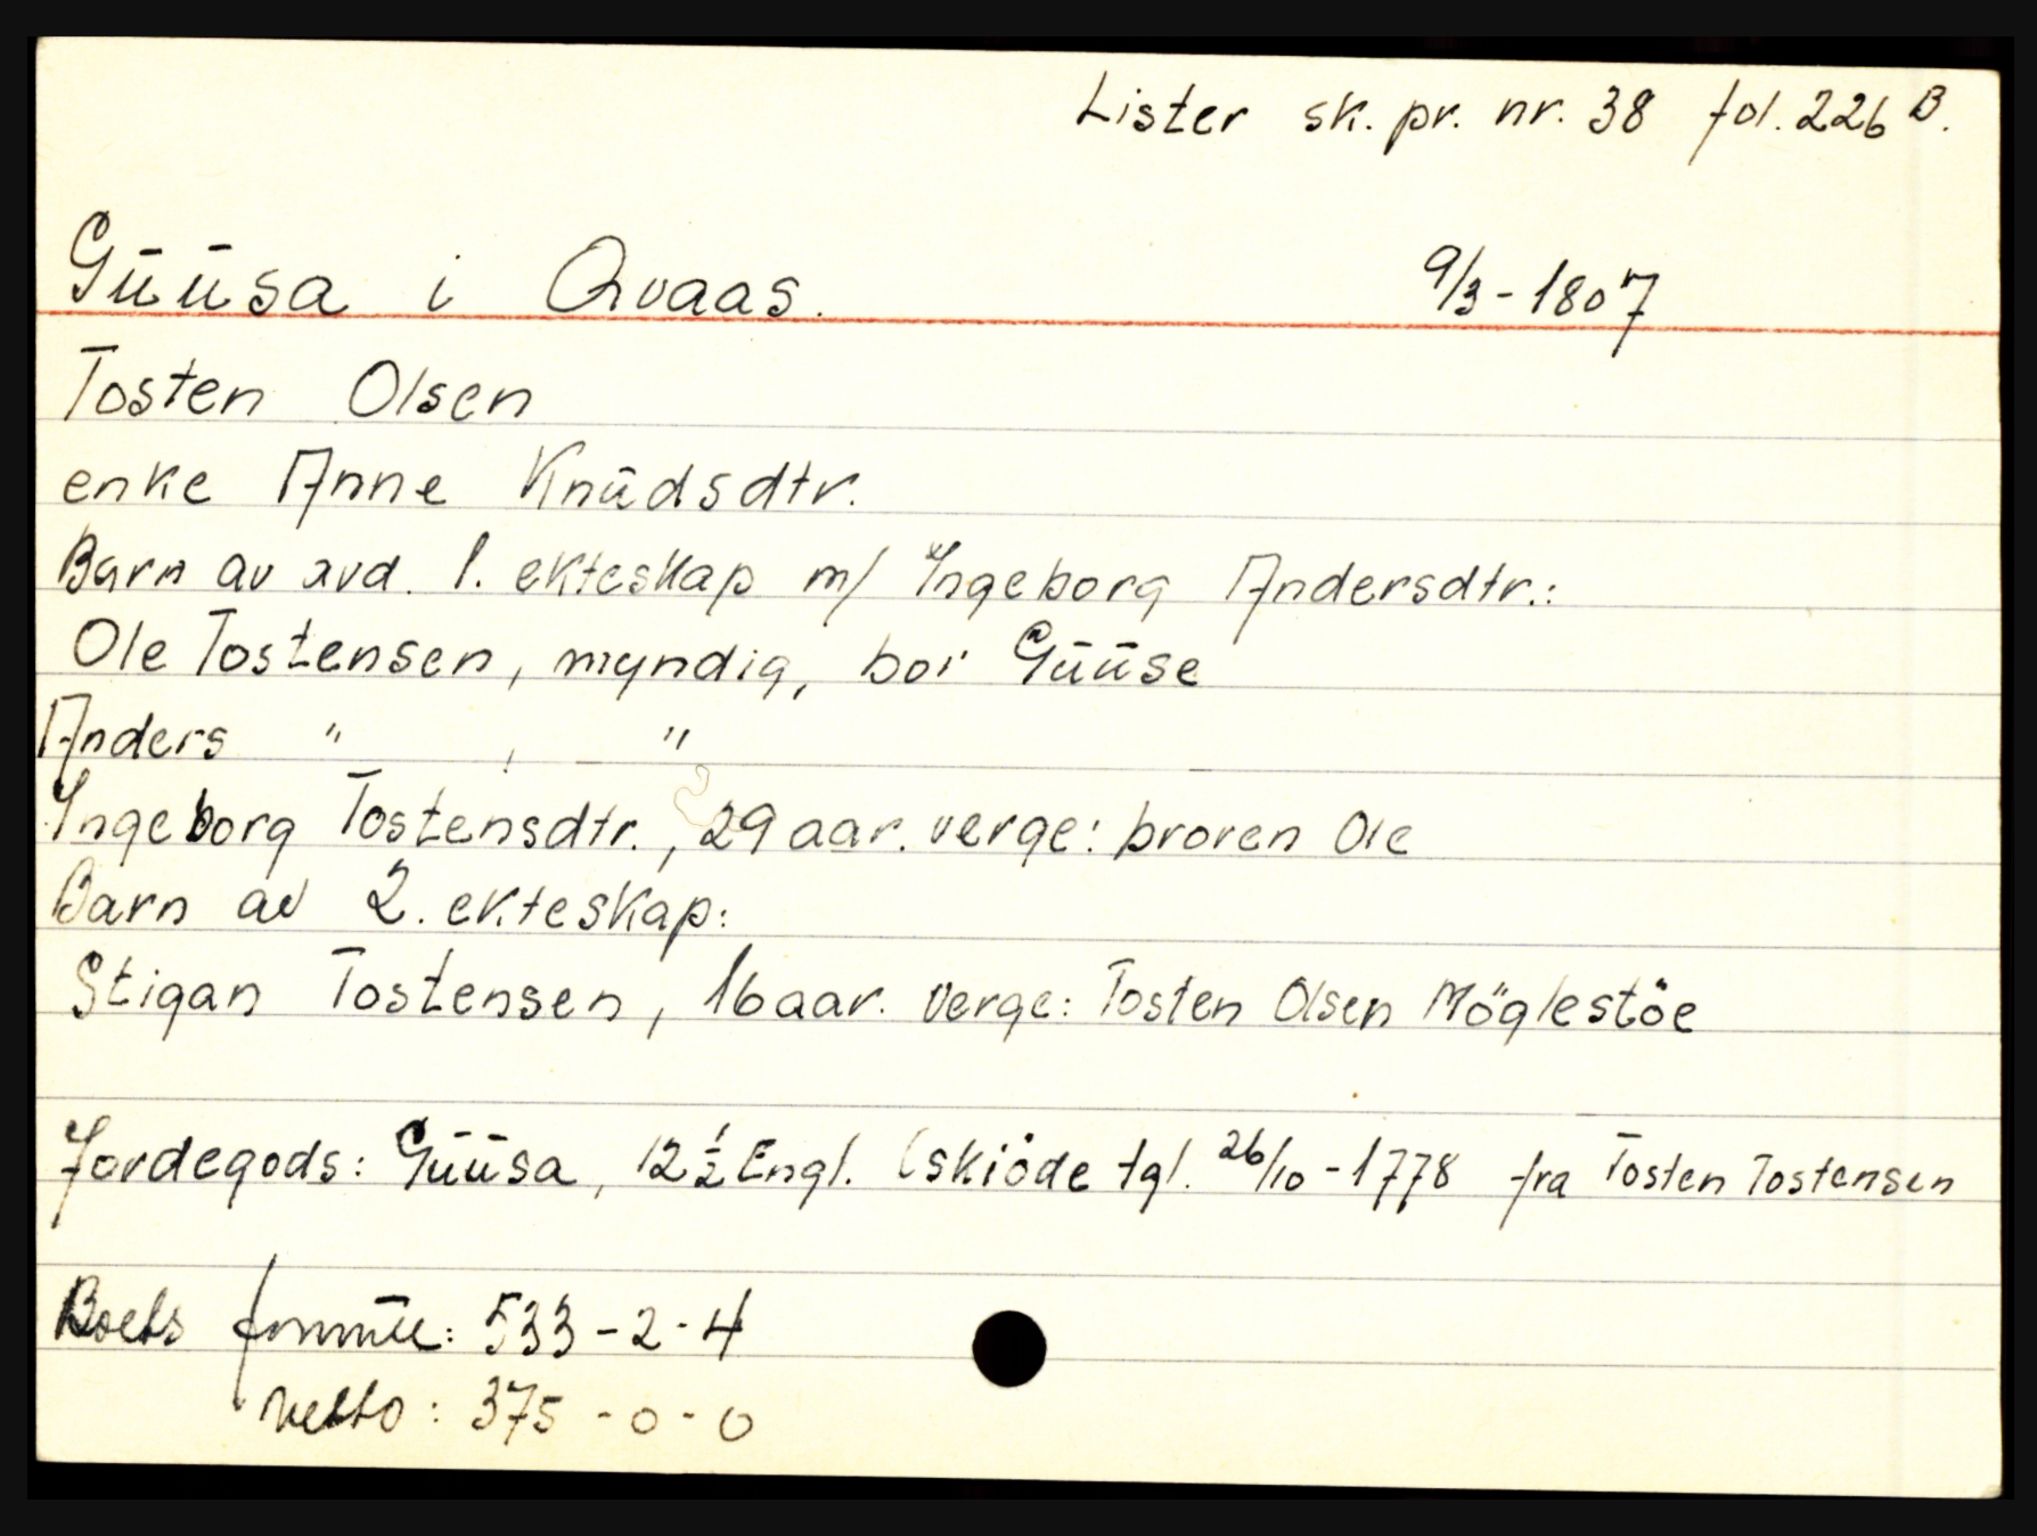 Lister sk. pr. nr. 38 fol. 226 B.
Gūūsa i Qvaas. 9/3-1807
Tosten Olsen
enke Anne Knūdsdtr.
Barn av avd. 1. ekteskap m/ Ingeborg Andersdtr.:
Ole Tostensen, myndig, bor Gūūse
Anders " , "
Ingeborg Tostensdtr., 29 aar. verge: broren Ole
Barn av 2. ekteskap:
Stigan Tostensen, 16 aar. verge: Tosten Olsen Möglestöe
Jordegods: Gūūsa, 12 1/2 Engl. (skiöde tgl. 26/10-1778 fra Tosten Tostensen
Boets formūe: 533-2-4
netto: 375-0-0